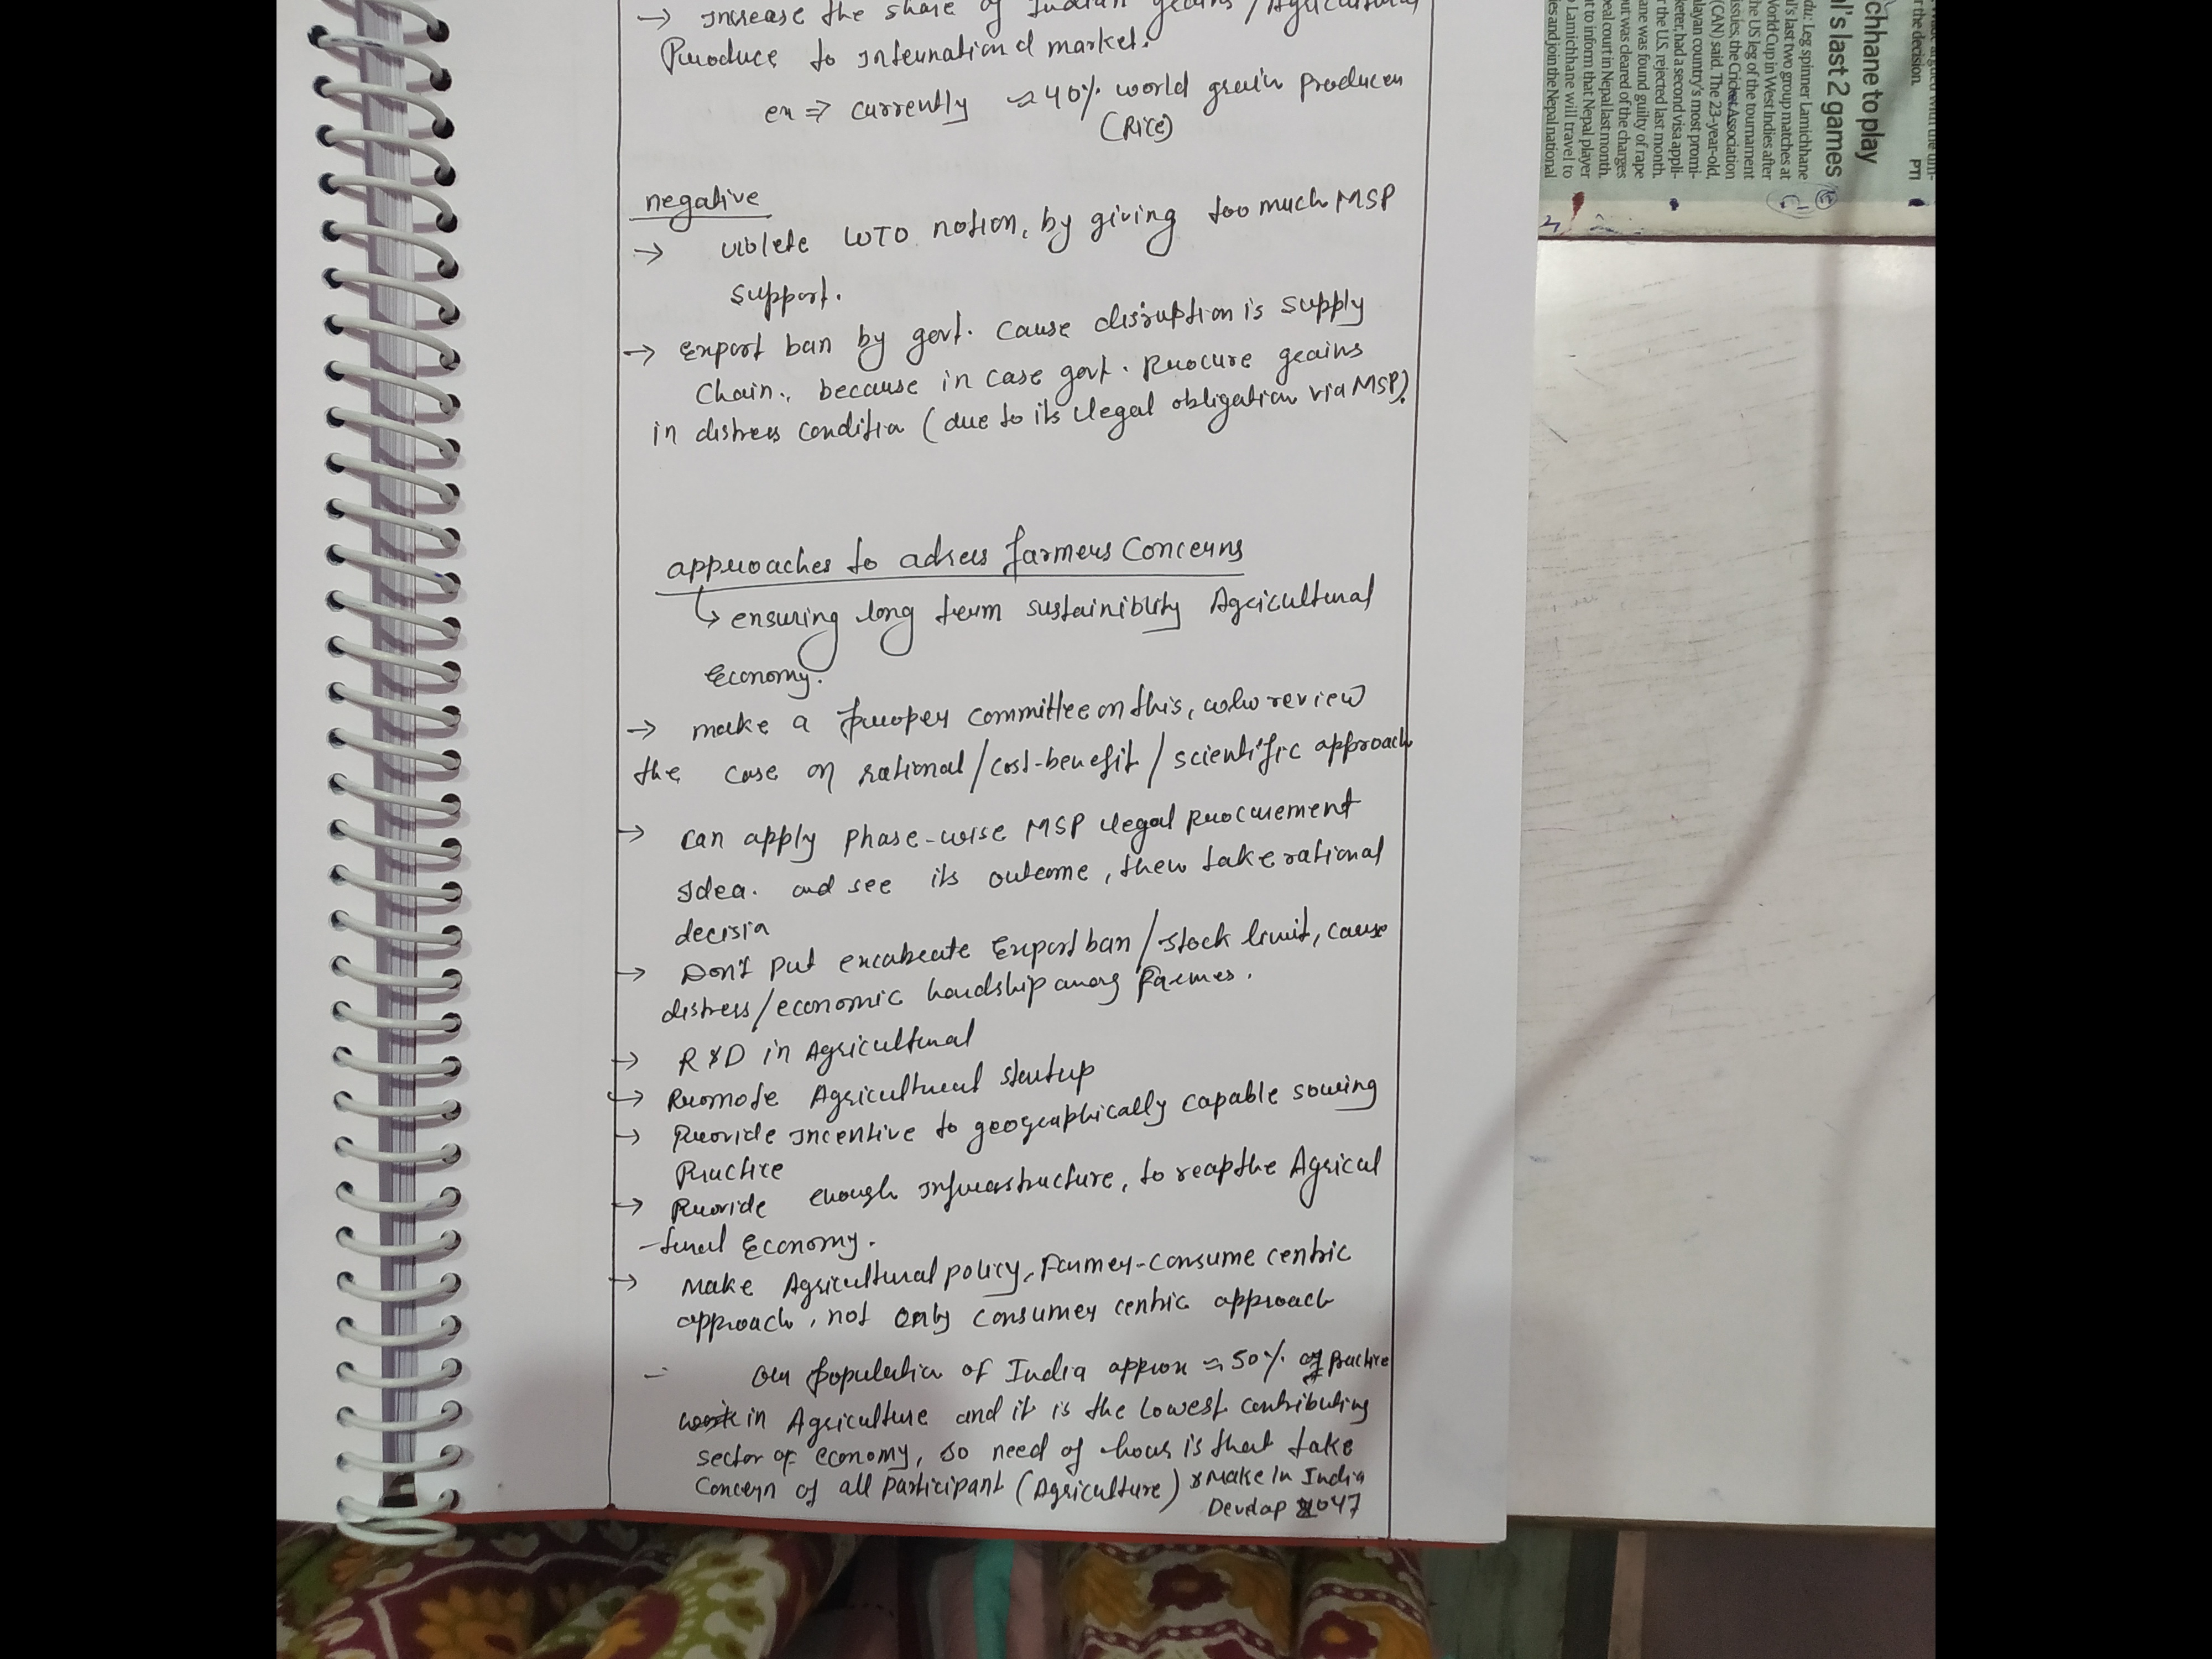 → Increase the share of Indian grains / Agricultural
Produce to International market.
ex ⇒ currently ≈ 40% world grain producer
(Rice)
negative
→ violete WTO notion, by giving too much MSP
support.
→ Export ban by govt. cause disruption is supply
chain., because in case govt. Procure grains
in distress condition (due to its legal obligation via MSP).
approaches to adress farmers Concerns
↳ ensuring long term sustainiblity Agricultural
Economy.
→ make a proper committee on this, who review
the case on rational/cost-benefit/scientific approach
→ can apply phase-wise MSP legal procurement
Idea. and see its outcome, then take rational
decision
→ Don't put Export ban / stock limit, cause
distress/economic hardship among Farmers.
→ R&D in Agricultural
→ Promote Agricultural startup
→ Provide Incentive to geographically capable sowing
Practice
→ Provide enough Infrastructure, to reap the Agricul
-tural Economy.
→ Make Agricultural policy, Farmer-consume centric
approach, not only consumer centric approach
– Our population of India approx ≈ 50% of practice
in Agriculture and it is the lowest contributing
sector of economy, so need of hour is that take
concern of all participant (Agriculture) & Make In India
Develop 2047
chhane to play
al's last 2 games
du: Leg spinner Lamichhane
al's last two group matches at
World Cup in West Indies after
he US leg of the tournament
issues, the Cricket Association
(CAN) said. The 23-year-old,
alayan country's most promi-
keter, had a second visa appli-
r the U.S. rejected last month.
ane was found guilty of rape
out was cleared of the charges
peal court in Nepal last month.
nt to inform that Nepal player
Lamichhane will travel to
ies and join the Nepal national
r the decision.
PTI